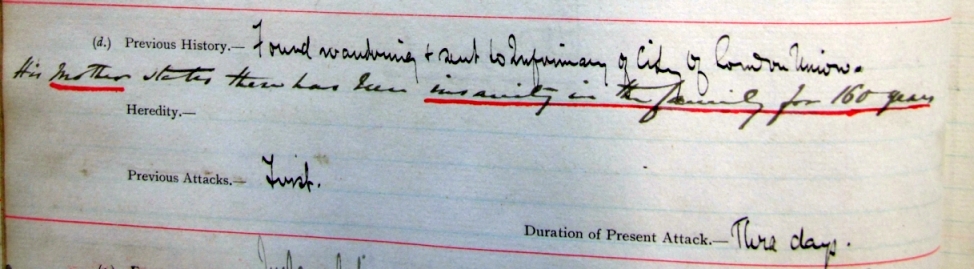 (d.) Previous History.— Found wandering & sent to Infirmary of City of London Union.
His Mother states there has been insanity in the family for 160 years
Heredity.—
Previous Attacks.— First.
Duration of Present Attack.— Three days.